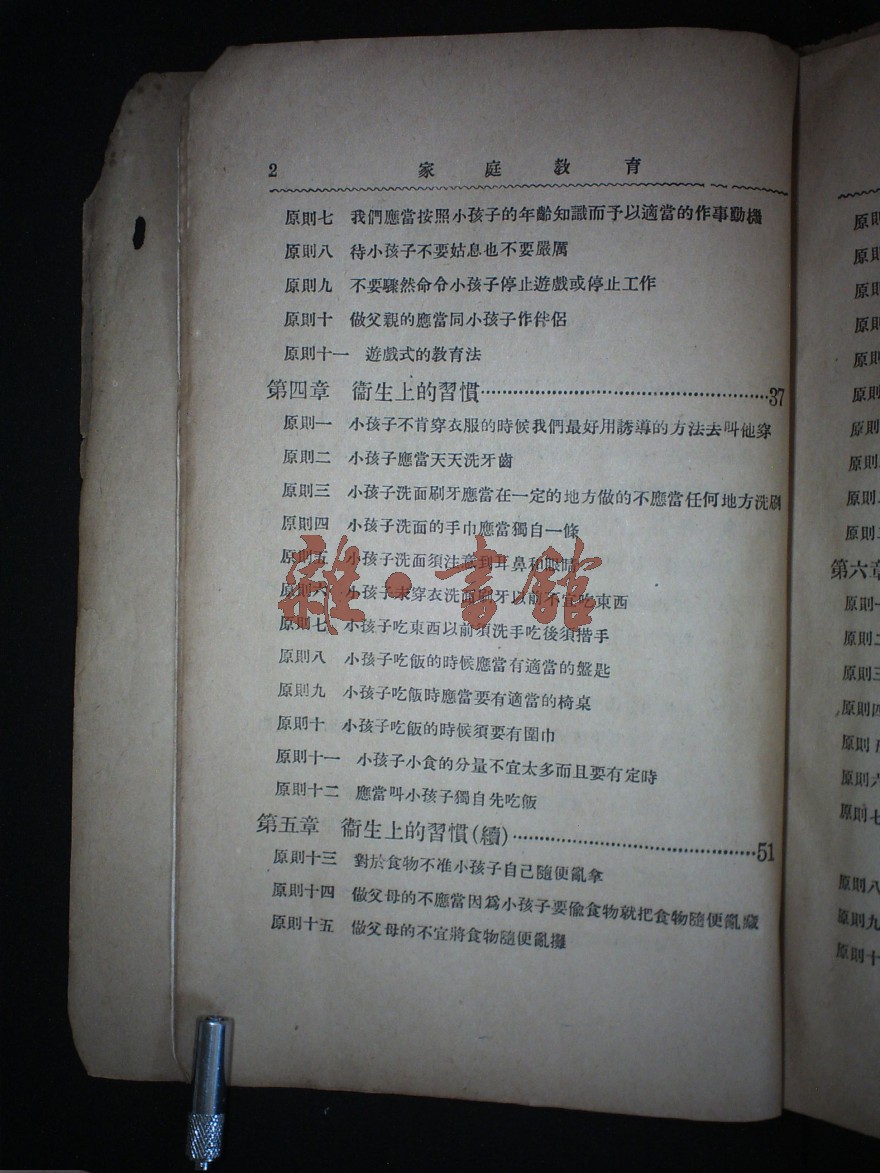 2 家庭教育
原則七 我們應當按照小孩子的年齡知識而予以適當的作事動機
原則八 待小孩子不要姑息也不要嚴厲
原則九 不要驟然命令小孩子停止遊戲或停止工作
原則十 做父親的應當同小孩子作伴侶
原則十一 遊戲式的教育法
第四章 衞生上的習慣…37
原則一 小孩子不肯穿衣服的時候我們最好用誘導的方法去叫他穿
原則二 小孩子應當天天洗牙齒
原則三 小孩子洗面刷牙應當在一定的地方做的不應當任何地方洗刷
原則四 小孩子洗面的手巾應當獨自一條
原則五 小孩子洗面須注意到耳鼻和眼睛
原則六 小孩子未穿衣洗面刷牙以前不宜吃東西
雜·書館
原則七 小孩子吃東西以前須洗手吃後須揩手
原則八 小孩子吃飯的時候應當有適當的盤匙
原則九 小孩子吃飯時應當要有適當的椅桌
原則十 小孩子吃飯的時候須要有圍巾
原則十一 小孩子小食的分量不宜太多而且要有定時
原則十二 應當叫小孩子獨自先吃飯
第五章 衞生上的習慣(續)…51
原則十三 對於食物不准小孩子自己隨便亂拿
原則十四 做父母的不應當因爲小孩子要偷食物就把食物隨便亂藏
原則十五 做父母的不宜將食物隨便亂攤
第六章
原則一
原則二
原則三
原則四
原則五
原則六
原則七
原則八
原則九
原則十